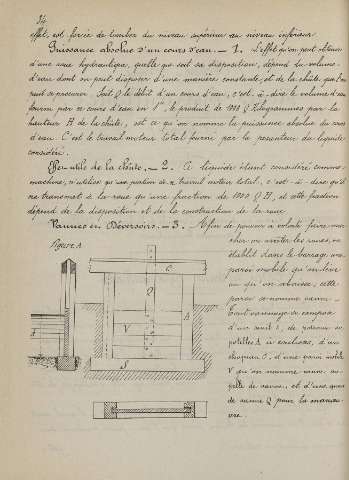 34
effet, est forcée de tomber du niveau supérieur au niveau inférieur.
Puissance absolue d'un cours d'eau. — 1. L'effet qu'on peut obtenir
d'une roue hydraulique, quelle que soit sa disposition, dépend du volume
d'eau dont on peut disposer d'une manière constante, et de la chûte, que l'on
peut se procurer. Soit Q le débit d'un cours d'eau, c'est-à-dire le volume d'eau
fourni par ce cours d'eau en 1'', le produit de 1000 Q Kilogrammes par la
hauteur H de la chûte, est ce qu'on nomme la puissance absolue du cours
d'eau. C'est le travail moteur total fourni par la pesanteur du liquide
considéré.
Effet utile de la chûte. — 2. Ce liquide étant considéré comme
machine, n'utilise qu'une portion de ce travail moteur total, c'est-à-dire qu'il
ne transmet à la roue qu'une fraction de 1000 Q H, et cette fraction
dépend de la disposition et de la construction de la roue.
Vannes en Déversoirs. — 3. Afin de pouvoir à volonté faire mar-
cher ou arrêter les roues, on
établit dans le barrage une
paroi mobile qu'on lève
ou qu'on abaisse, cette
paroi se nomme vanne.
Tout vannage se compose
d'un seuil S, de poteaux ou
potilles A à coulisses, d'un
chapeau C, d'une paroi mobile
V qu'on nomme vanne ou
pelle de vanne, et d'une queue
de vanne Q pour la manœu-
vre.
Figure A
C
Q
A
V
S